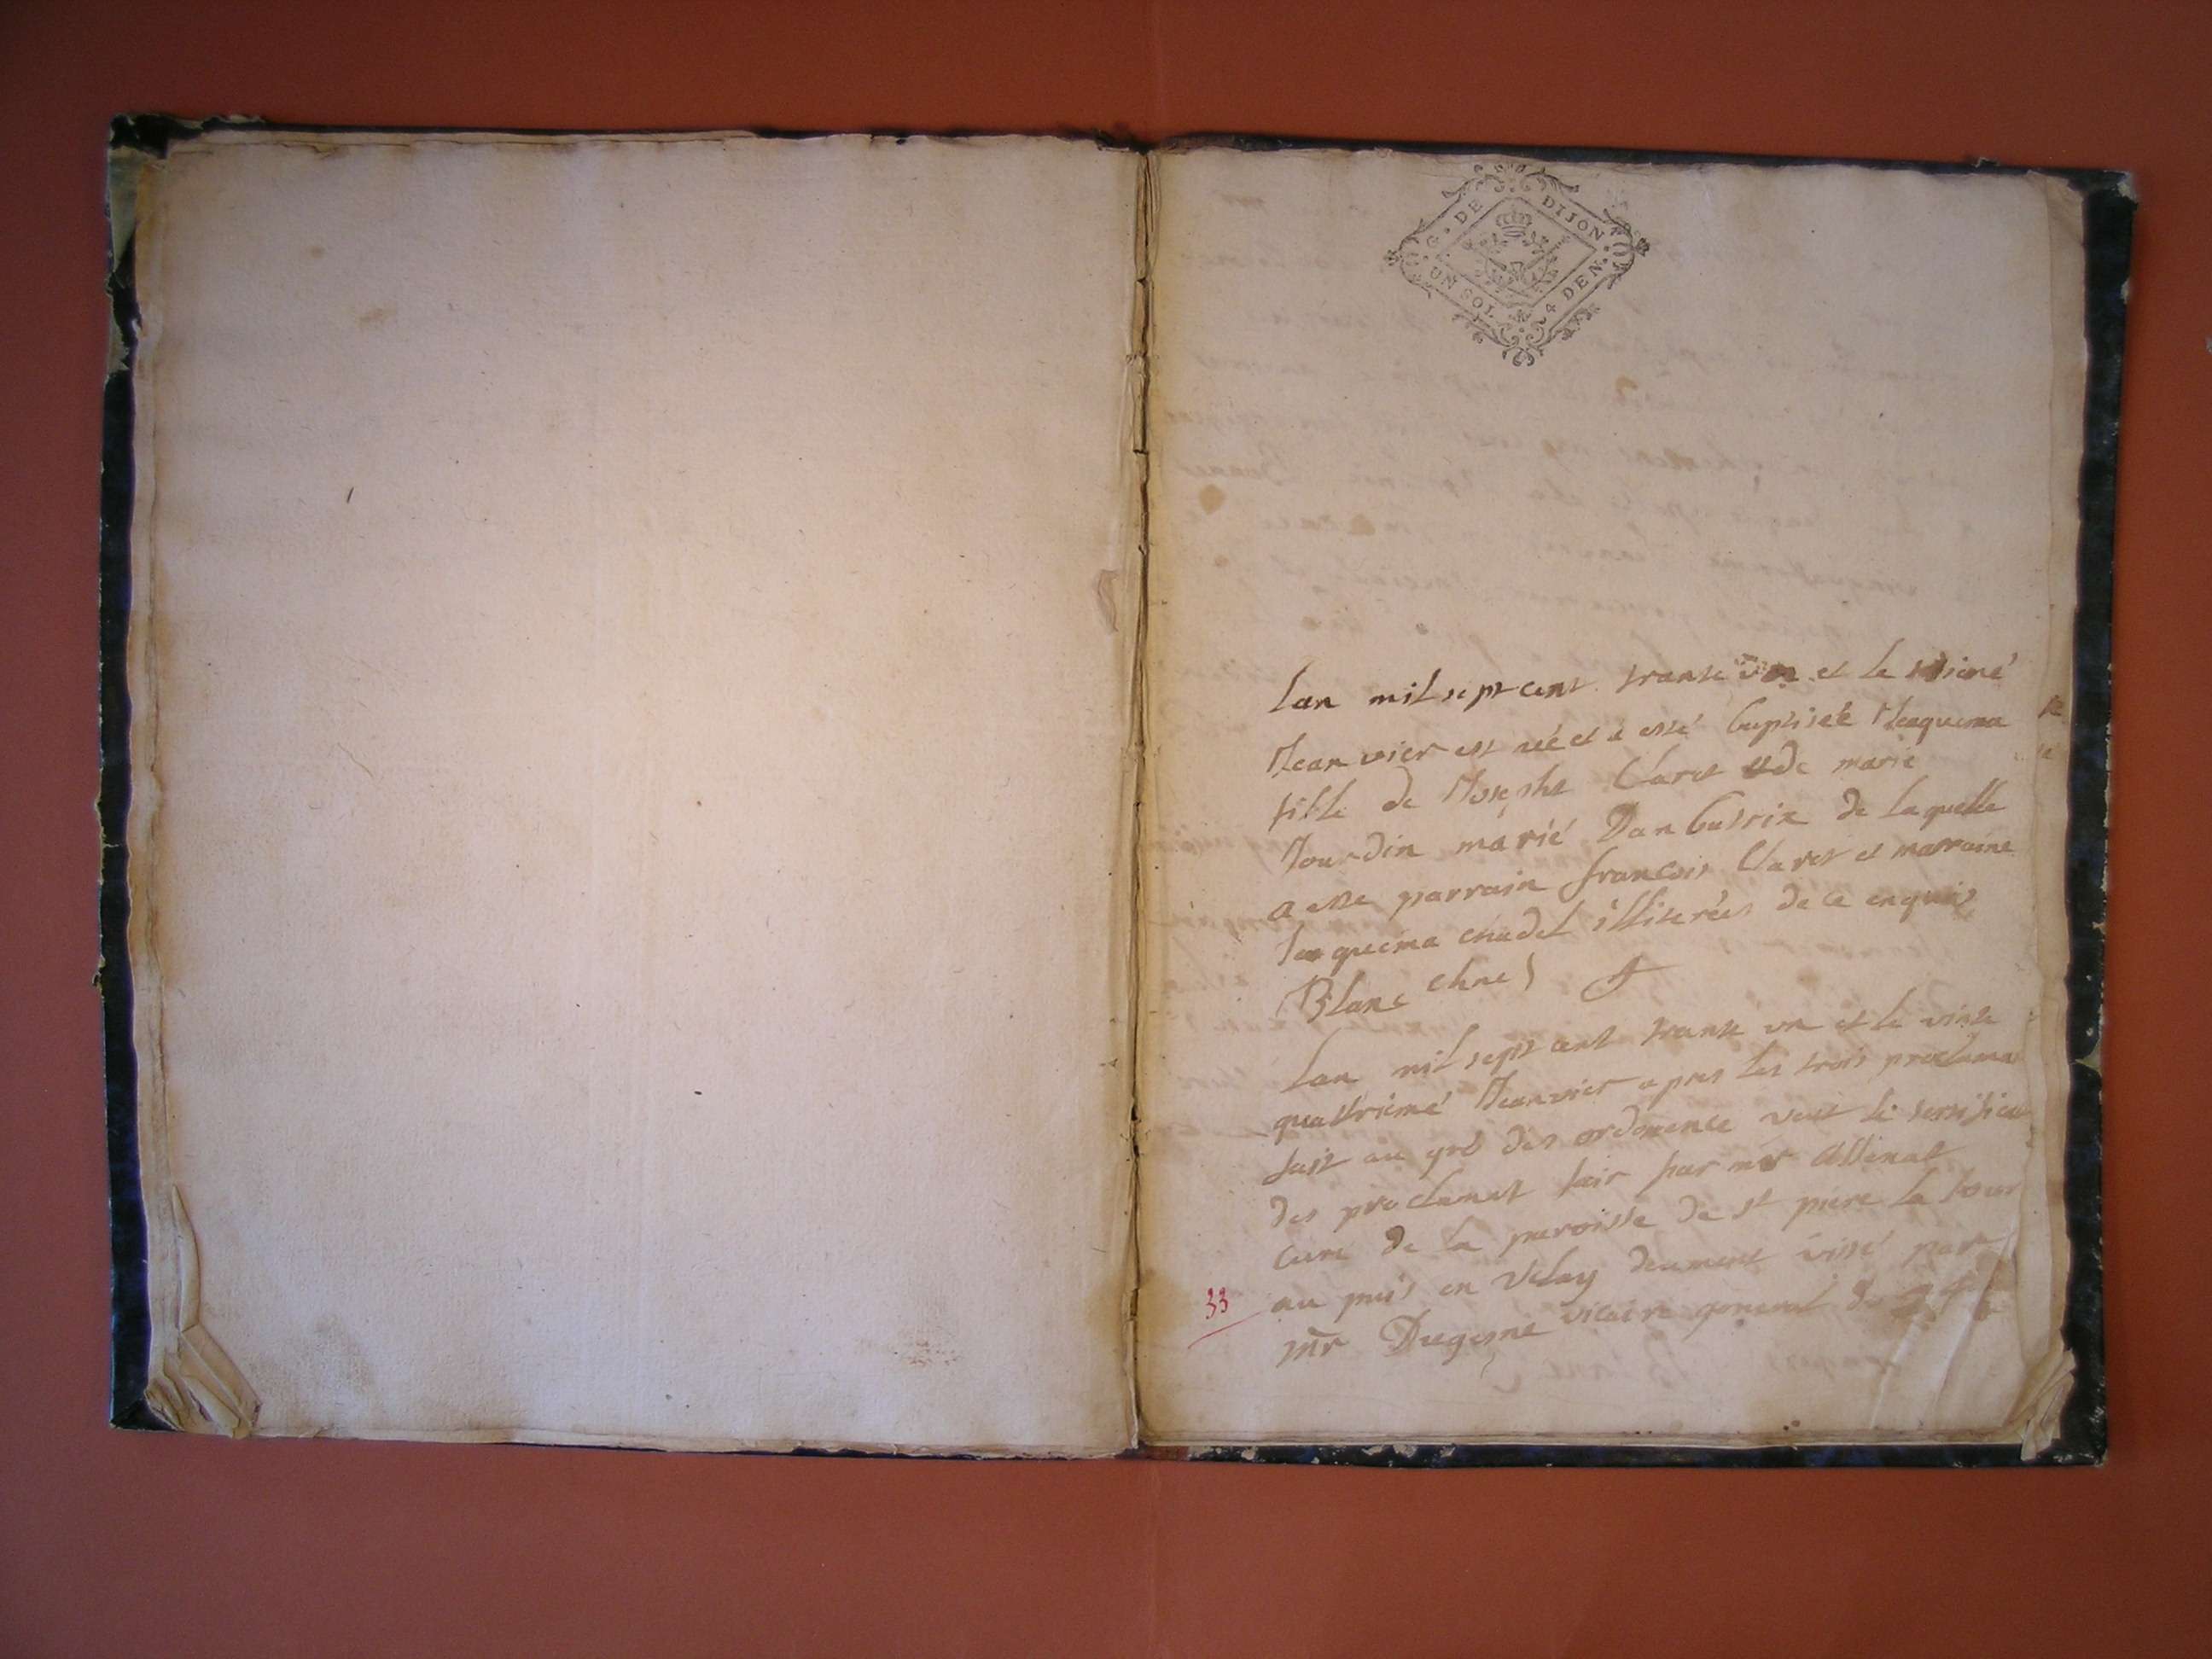 G. DE DIJON
UN SOL 4 DEN.
lan mil sept cent trante un et le sisiemé
Jeanvier est née et a esté baptisée Jeaquema
fille de Josepht Claret et de marie
Jourdin marié Danbusrix de laquelle
a este parrain francois Claret et marraine
Jeaquema chudel illiterées de ce enquis
Blanc
lan mil sept cent trante un et le vinte
quattriemé Jeanvier apres les trois proclama
fait au gré des ordonence veut le sertificat
des proclamat fair par mr
curé de la paroisse de st piere la tour
au puis en Velay deument vissé par
33
mr vicaire general